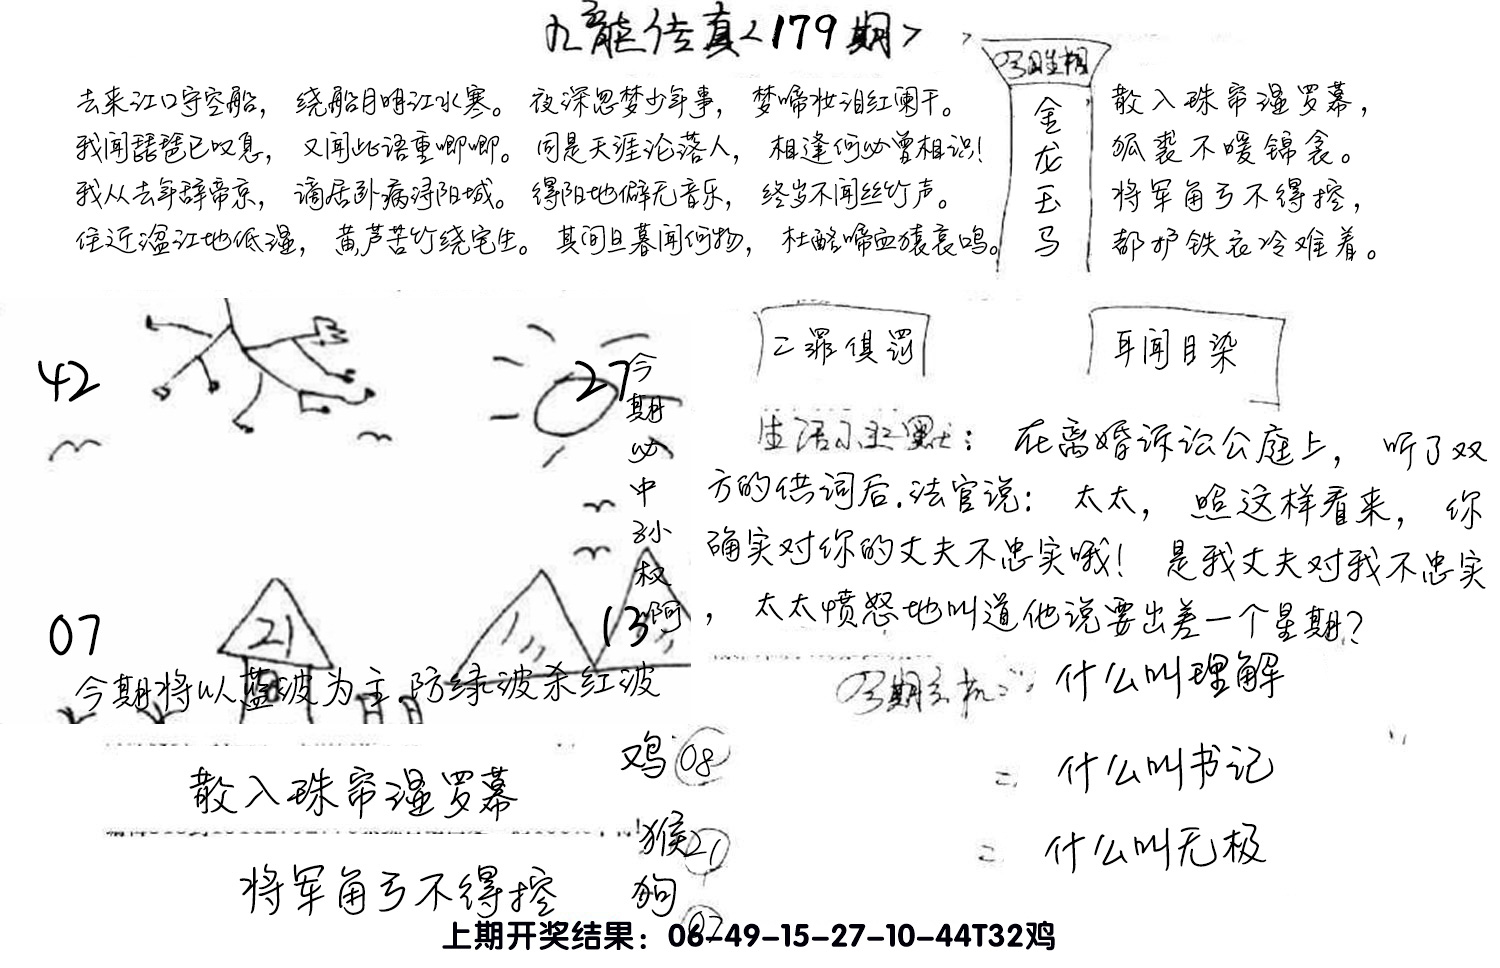 九龍传真<179期>
去来江口守空船，绕船月明江水寒。夜深忽梦少年事，梦啼妆泪红阑干。
我闻琵琶已叹息，又闻此语重唧唧。同是天涯沦落人，相逢何必曾相识！
我从去年辞帝京，谪居卧病浔阳城。浔阳地僻无音乐，终岁不闻丝竹声。
住近湓江地低湿，黄芦苦竹绕宅生。其间旦暮闻何物，杜鹃啼血猿哀鸣。
今日生相
金
龙
玉
马
散入珠帘湿罗幕，
狐裘不暖锦衾。
将军角弓不得控，
都护铁衣冷难着。
42
27
07
21
13
今期必中孙权啊
今期将以蓝波为主.防绿波杀红波
二罪俱罚
耳闻目染
生活小幽默：在离婚诉讼公庭上，听了双
方的供词后.法官说：太太，照这样看来，你
确实对你的丈夫不忠实哦！是我丈夫对我不忠实
，太太愤怒地叫道他说要出差一个星期？
今期玄机
什么叫理解
二
什么叫书记
三
什么叫无极
散入珠帘湿罗幕
将军角弓不得控
鸡08
猴21
狗07
上期开奖结果：06-49-15-27-10-44T32鸡